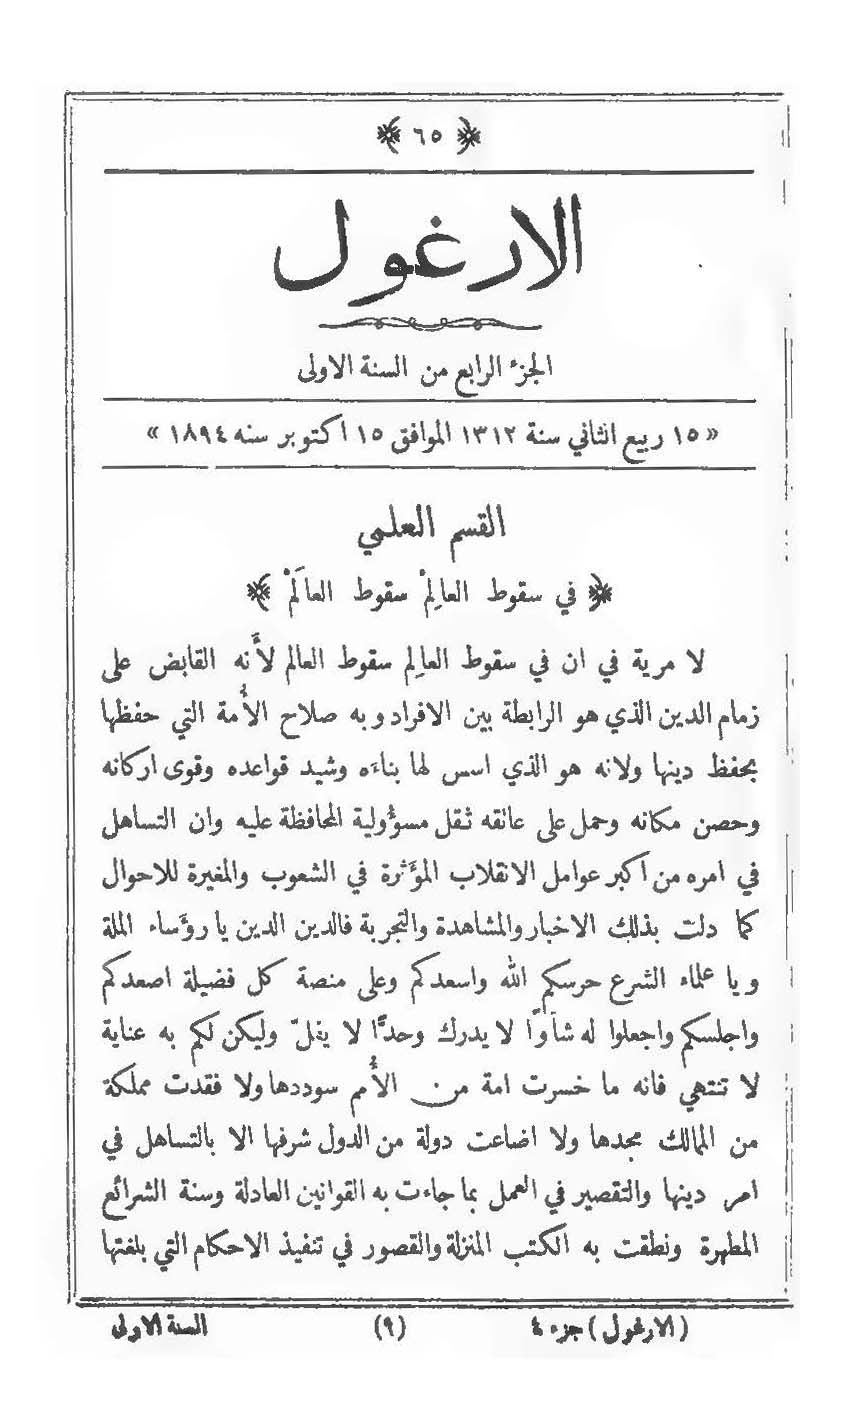 ﴿ ٦٥ ﴾
الارغول
الجزء الرابع من السنة الاولى
« ١٥ ربيع الثاني سنة ١٣١٢ الموافق ١٥ اكتوبر سنه ١٨٩٤ »
القسم العلمي
﴿ في سقوط العالِمْ سقوط العالَمْ ﴾
لا مرية في ان في سقوط العالِم سقوط العالم لأَنه القابض على
زمام الدين الذي هو الرابطة بين الافراد وبه صلاح الأُمة التي حفظها
بحفظ دينها ولانه هو الذي اسس لها بناءَه وشيد قواعده وقوى اركانه
وحصن مكانه وحمل على عاتقه ثقل مسؤُولية المحافظة عليه وان التساهل
في امره من اكبر عوامل الانقلاب المؤَثرة في الشعوب والمغيرة للاحوال
كما دلت بذلك الاخبار والمشاهدة والتجربة فالدين الدين يا روَّساء الملة
ويا علماء الشرع حرسكم الله واسعدكم وعلى منصة كل فضيلة اصعدكم
واجلسكم واجعلوا له شأوًا لا يدرك وحدًّا لا يفلّ وليكن لكم به عناية
لا تنتهي فانه ما خسرت امة من الأُمم سوددها ولا فقدت مملكة
من الممالك مجدها ولا اضاعت دولة من الدول شرفها الا بالتساهل في
امر دينها والتقصير في العمل بما جاءت به القوانين العادلة وسنة الشرائع
المطهرة ونطقت به الكتب المنزلة والقصور في تنفيذ الاحكام التي بلغتها
(الارغول) جزء ٤ (٩) السنة الاولى